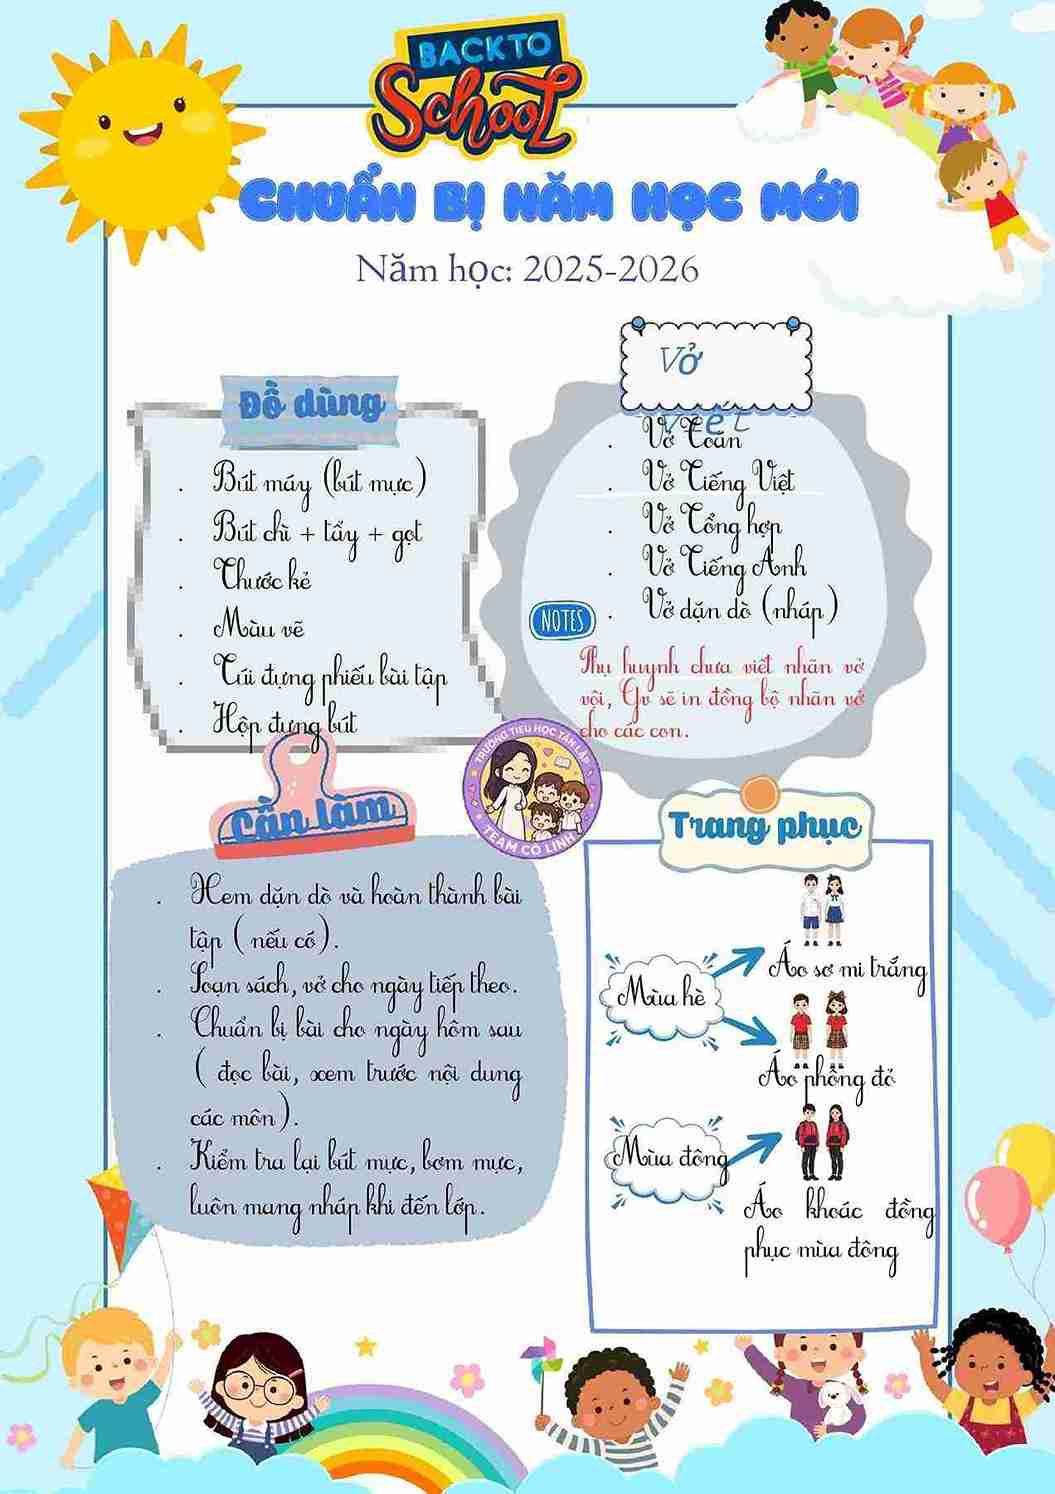 BACK TO
School
CHUẨN BỊ NĂM HỌC MỚI
Năm học: 2025-2026
Đồ dùng
. Bút máy (bút mực)
. Bút chì + tẩy + gọt
. Thước kẻ
. Màu vẽ
. Túi đựng phiếu bài tập
. Hộp đựng bút
Vở
viết
. Vở Toán
. Vở Tiếng Việt
. Vở Tổng hợp
. Vở Tiếng Anh
. Vở dặn dò (nháp)
NOTES
Phụ huynh chưa viết nhãn vở
vội, Gv sẽ in đồng bộ nhãn vở
cho các con.
TRƯỜNG TIỂU HỌC TÂN LẬP
TEAM CÔ LINH
Cần làm
. Xem dặn dò và hoàn thành bài
tập ( nếu có).
. Soạn sách, vở cho ngày tiếp theo.
. Chuẩn bị bài cho ngày hôm sau
( đọc bài, xem trước nội dung
các môn).
. Kiểm tra lại bút mực, bơm mực,
luôn mang nháp khi đến lớp.
Trang phục
Mùa hè
Áo sơ mi trắng
Áo phông đỏ
Mùa đông
Áo khoác đồng
phục mùa đông